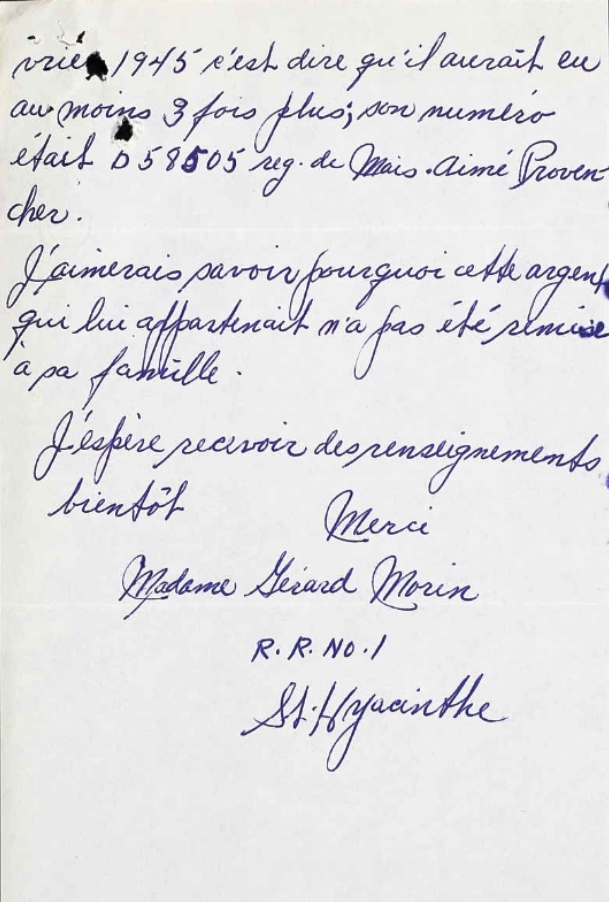 vrier 1945 c'est dire qu'il aurait eu
au moins 3 fois plus; son numéro
était D 58505 reg. de Mais. Aimé Proven-
cher.
J'aimerais savoir pourquoi cette argent
qui lui appartenait n'a pas été remise
à sa famille.
J'éspère recevoir des renseignements
bientôt
Merci
Madame Gérard Morin
R. R. No. 1
St-Hyacinthe